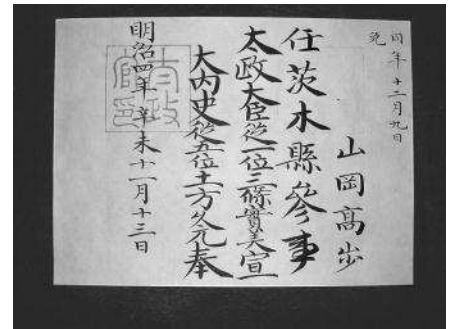 同年十二月九日
免
山岡髙步
任茨木縣參事
太政大臣從一位三條實美宣
大內史從五位土方久元奉
明治四年辛未十一月十三日
太政官印